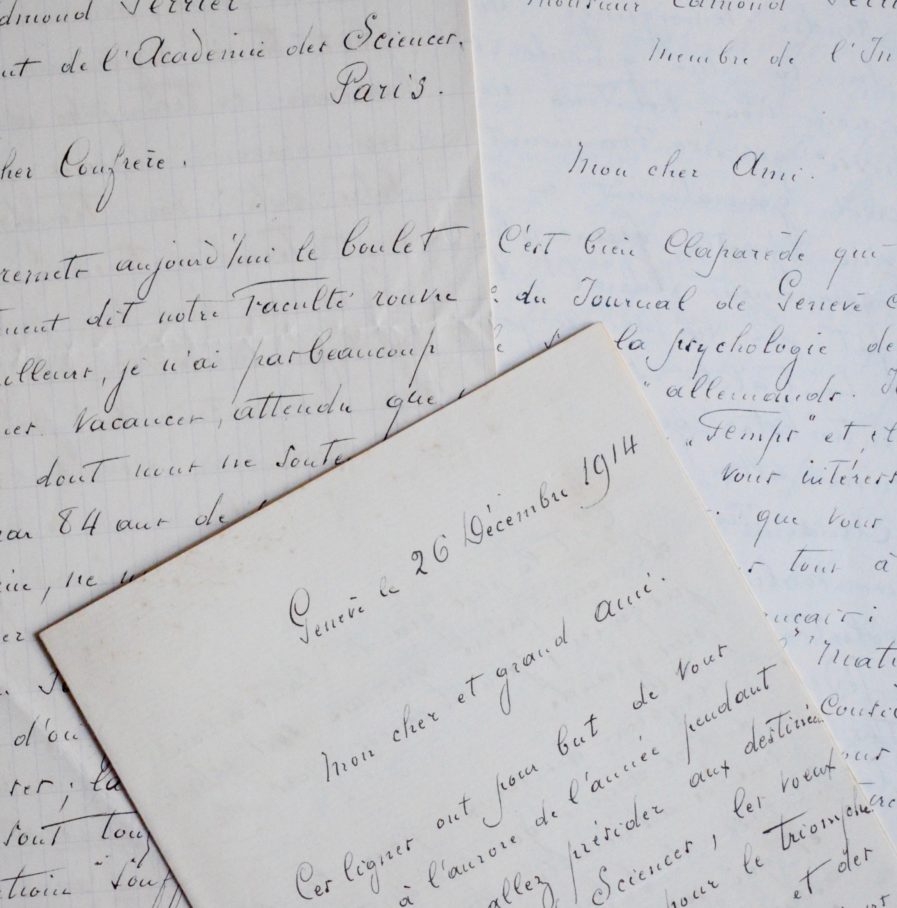 Edmond Perrier
de l'Academie des Sciences.
Paris.
cher Confrère.
remets aujourd'hui le boulet
dit notre Faculté rouvre
ailleurs, je n'ai pas beaucoup
vacances, attendu que
dont nous ne
84 ans de
ne
d'où
sont
Monsieur Edmond
Membre de l'In
Mon cher Ami.
C'est bien Claparède qui
du Journal de Genève
la psychologie de
" allemands.
„Temps" et
vous intéress
que vous
tout à
Genève le 26 Décembre 1914
Mon cher et grand ami.
Ces lignes ont pour but de vous
à l'aurore de l'année pendant
allez présider aux destinées
Sciences, les voeux
pour le triomphe
et des